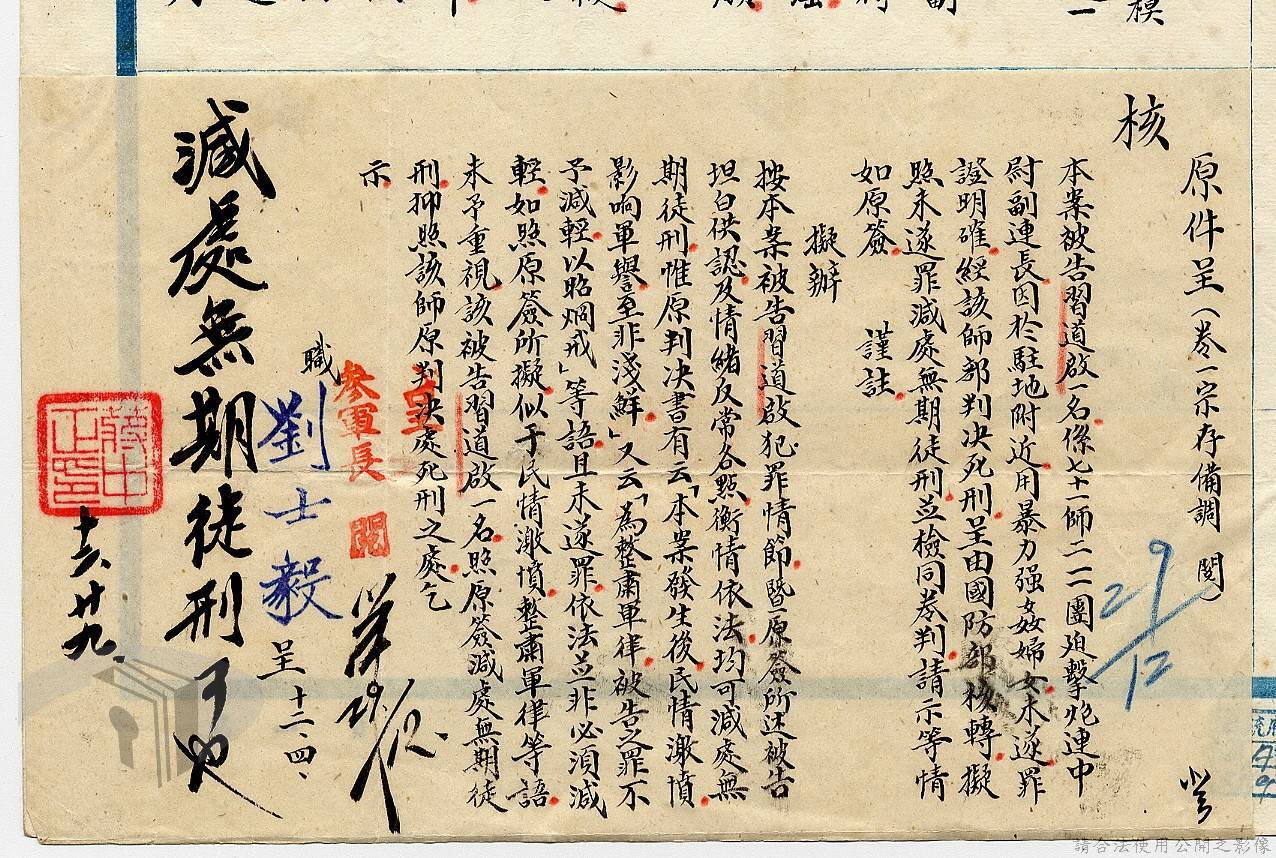 核
原件呈（卷一宗存備調閱）
本案被告習道啟一名係七十一師二一一團迫擊炮連中
尉副連長因於駐地附近用暴力强姦婦女未遂罪
證明確經該師部判決死刑呈由國防部核轉擬
照未遂罪減處無期徒刑並檢同卷判請示等情
如原簽　謹註
擬辦
按本案被告習道啟犯罪情節暨原簽所述被告
坦白供認及情緒反常各點衡情依法均可減處無
期徒刑惟原判決書有云「本案發生後民情激憤
影响軍譽至非淺鮮」又云「為整肅軍律被告之罪不
予減輕以昭烱戒」等語且未遂罪依法並非必須減
輕如照原簽所擬似于民情激憤整肅軍律等語
未予重視該被告習道啟一名照原簽減處無期徒
刑抑照該師原判決處死刑之處乞
示
職劉士毅呈 十二、四、
參軍長 閱
減處無期徒刑可也
蔣中正印
十二、廿九、
29/12
請合法使用公開之影像